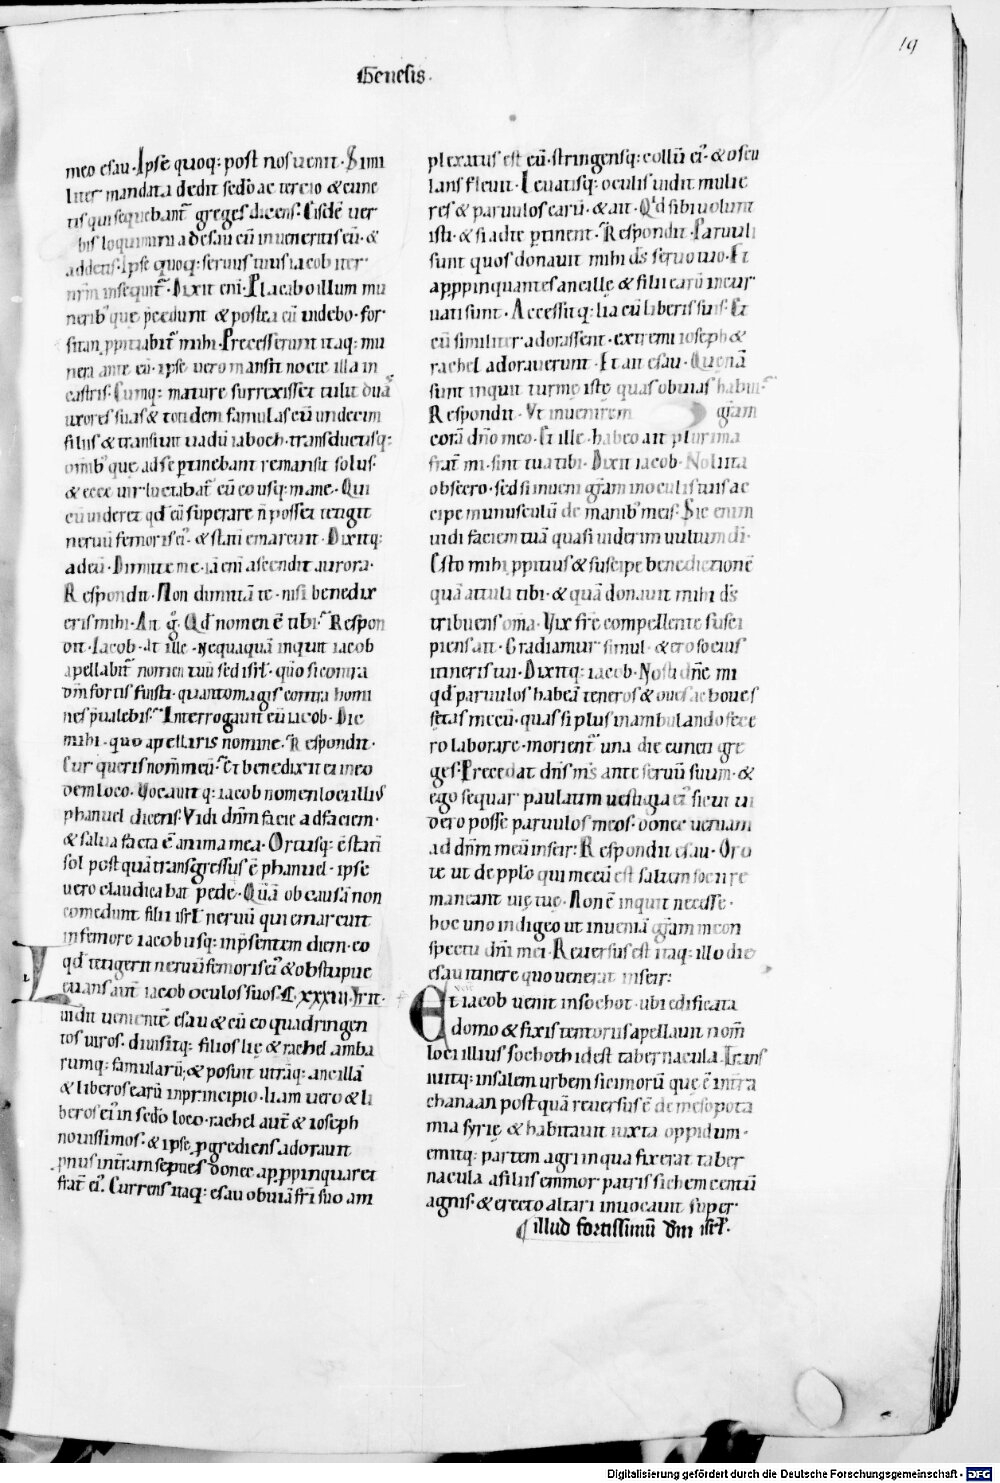 19
Genesis.
meo esau. Ipse quoq; post nos uenit. Simi
liter mandata dedit sedo ac tercio & cunc
tis qui sequebant greges dicens. Eisdē uer
bis loquimini ad esau cū inueneritis eū. &
addetis. Ipse quoq; seruus tuus iacob iter
nrm insequit. Dixit eni. Placabo illum mu
nerib' que p̄cedunt & postea eū uidebo. for
sitan ppitiabit mihi. Precesserunt itaq; mu
nera ante eū. ipse uero mansit nocte illa in
castris. Cumq; mature surrexisset tulit duas
uxores suas & totidem famulas cū undecim
filiis & transiuit uadū iaboch. transductisq;
omib' que ad se ptinebant remansit solus.
& ecce uir luctabat cū eo usq; mane. Qui
cū uideret qd eū superare n̄ posset tetigit
neruū femoris ei'. & statī emarcuit. Dixitq;
ad eū. Dimitte me. iā eni ascendit aurora.
Respondit. Non dimittā te. nisi benedix
eris mihi. Ait g°. Qd nomen ē tibi. Respon
dit. Iacob. At ille. Nequaquā inquit iacob
apellabit nomen tuū sed isrl. quo si contra
dm fortis fuisti. quanto magis contra homi
nes p̄ualebis. Interrogauit eū iacob. Dic
mihi. quo apellaris nomine. Respondit.
Cur queris nomn meū. Et benedixit ei in eo
dem loco. Vocauit q; iacob nomen loci illius
phanuel dicens. Vidi dnm facie ad faciem.
& salua facta ē anima mea. Ortusq; ē statī
sol postquā transgressus ē phanuel. ipse
uero claudicabat pede. Quā ob causā non
comedunt filii isrl neruū qui emarcuit
in femore iacob usq; in p̄sentem diem. eo
qd tetigerit neruū femoris ei' & obstipue
Leuans aut iacob oculos suos. C. xxxiii. rit.
uidit uenientē esau & cū eo quadringen
tos uiros. diuisitq; filios lię & rachel amba
rumq; famularū; & posuit utrāq; ancillā
& liberos earū in principio. liam uero & li
beros ei' in sedo loco. rachel aut & ioseph
nouissimos. & ipse pgrediens adorauit
pnus in tram septies donec appropinquaret
frat ei'. Currens itaq; esau obuiā fri suo am
plexatus est eū. stringensq; collū ei'. & oscu
lans fleuit. Leuatisq; oculis uidit mulie
res & paruulos earū. & ait. Qd sibi uolunt
isti. & si ad te ptinent. Respondit. Paruuli
sunt quos donauit mihi ds seruo tuo. Et
appropinquantes ancille & filii earū incur
uati sunt. Accessitq; lia cū liberis suis. Et
cū similiter adorassent. extremi ioseph &
rachel adorauerunt. Et ait esau. Quenā
sunt inquit turme iste quas obuias habui.
Respondit. Vt inuenirem gratiam
corā dno meo. Et ille. habeo ait plurima
frat mi. sint tua tibi. Dixit iacob. Noli ita
obsecro. sed si inueni gratiam in oculis tuis ac
cipe munusculū de manib' meis. Sic enim
uidi faciem tuā quasi uiderim uultum di.
Esto mihi ppitius & suscipe benedictionē
quā attuli tibi. & quā donauit mihi ds
tribuens oma. Vix fre compellente susci
piens ait. Gradiamur simul. & ero socius
itineris tui. Dixitq; iacob. Nosti dne mi
qd paruulos habeā teneros & oues ac boues
fetas mecū. quas si plus in ambulando fece
ro laborare. morient una die cuncti gre
ges. Precedat dns ms ante seruū suum. &
ego sequar paulatim uestigia ei' sicut ui
dero posse paruulos meos. donec ueniam
ad dnm meū in seir. Respondit esau. Oro
te ut de pplo qui mecū est saltem socii re
maneant uię tue. Non ē inquit necesse.
hoc uno indigeo ut inueniā gratiam in con
spectu dm mei. Reuersus est itaq; illo die
esau itinere quo uenerat in seir.
Et iacob uenit in sochot. ubi edificata
domo & fixis tentoriis apellauit nom
loci illius sochoth id est tabernacula. Trans
iuitq; in salem urbem sicimorū que ē in tra
chanaan postquā reuersus ē de mesopota
mia syrię & habitauit iuxta oppidum.
emitq; partem agri in qua fixerat taber
nacula a filiis emmor patris sichem centū
agnis. & erecto altari inuocauit super.
illud fortissimū dm isrl.
Digitalisierung gefördert durch die Deutsche Forschungsgemeinschaft - DFG